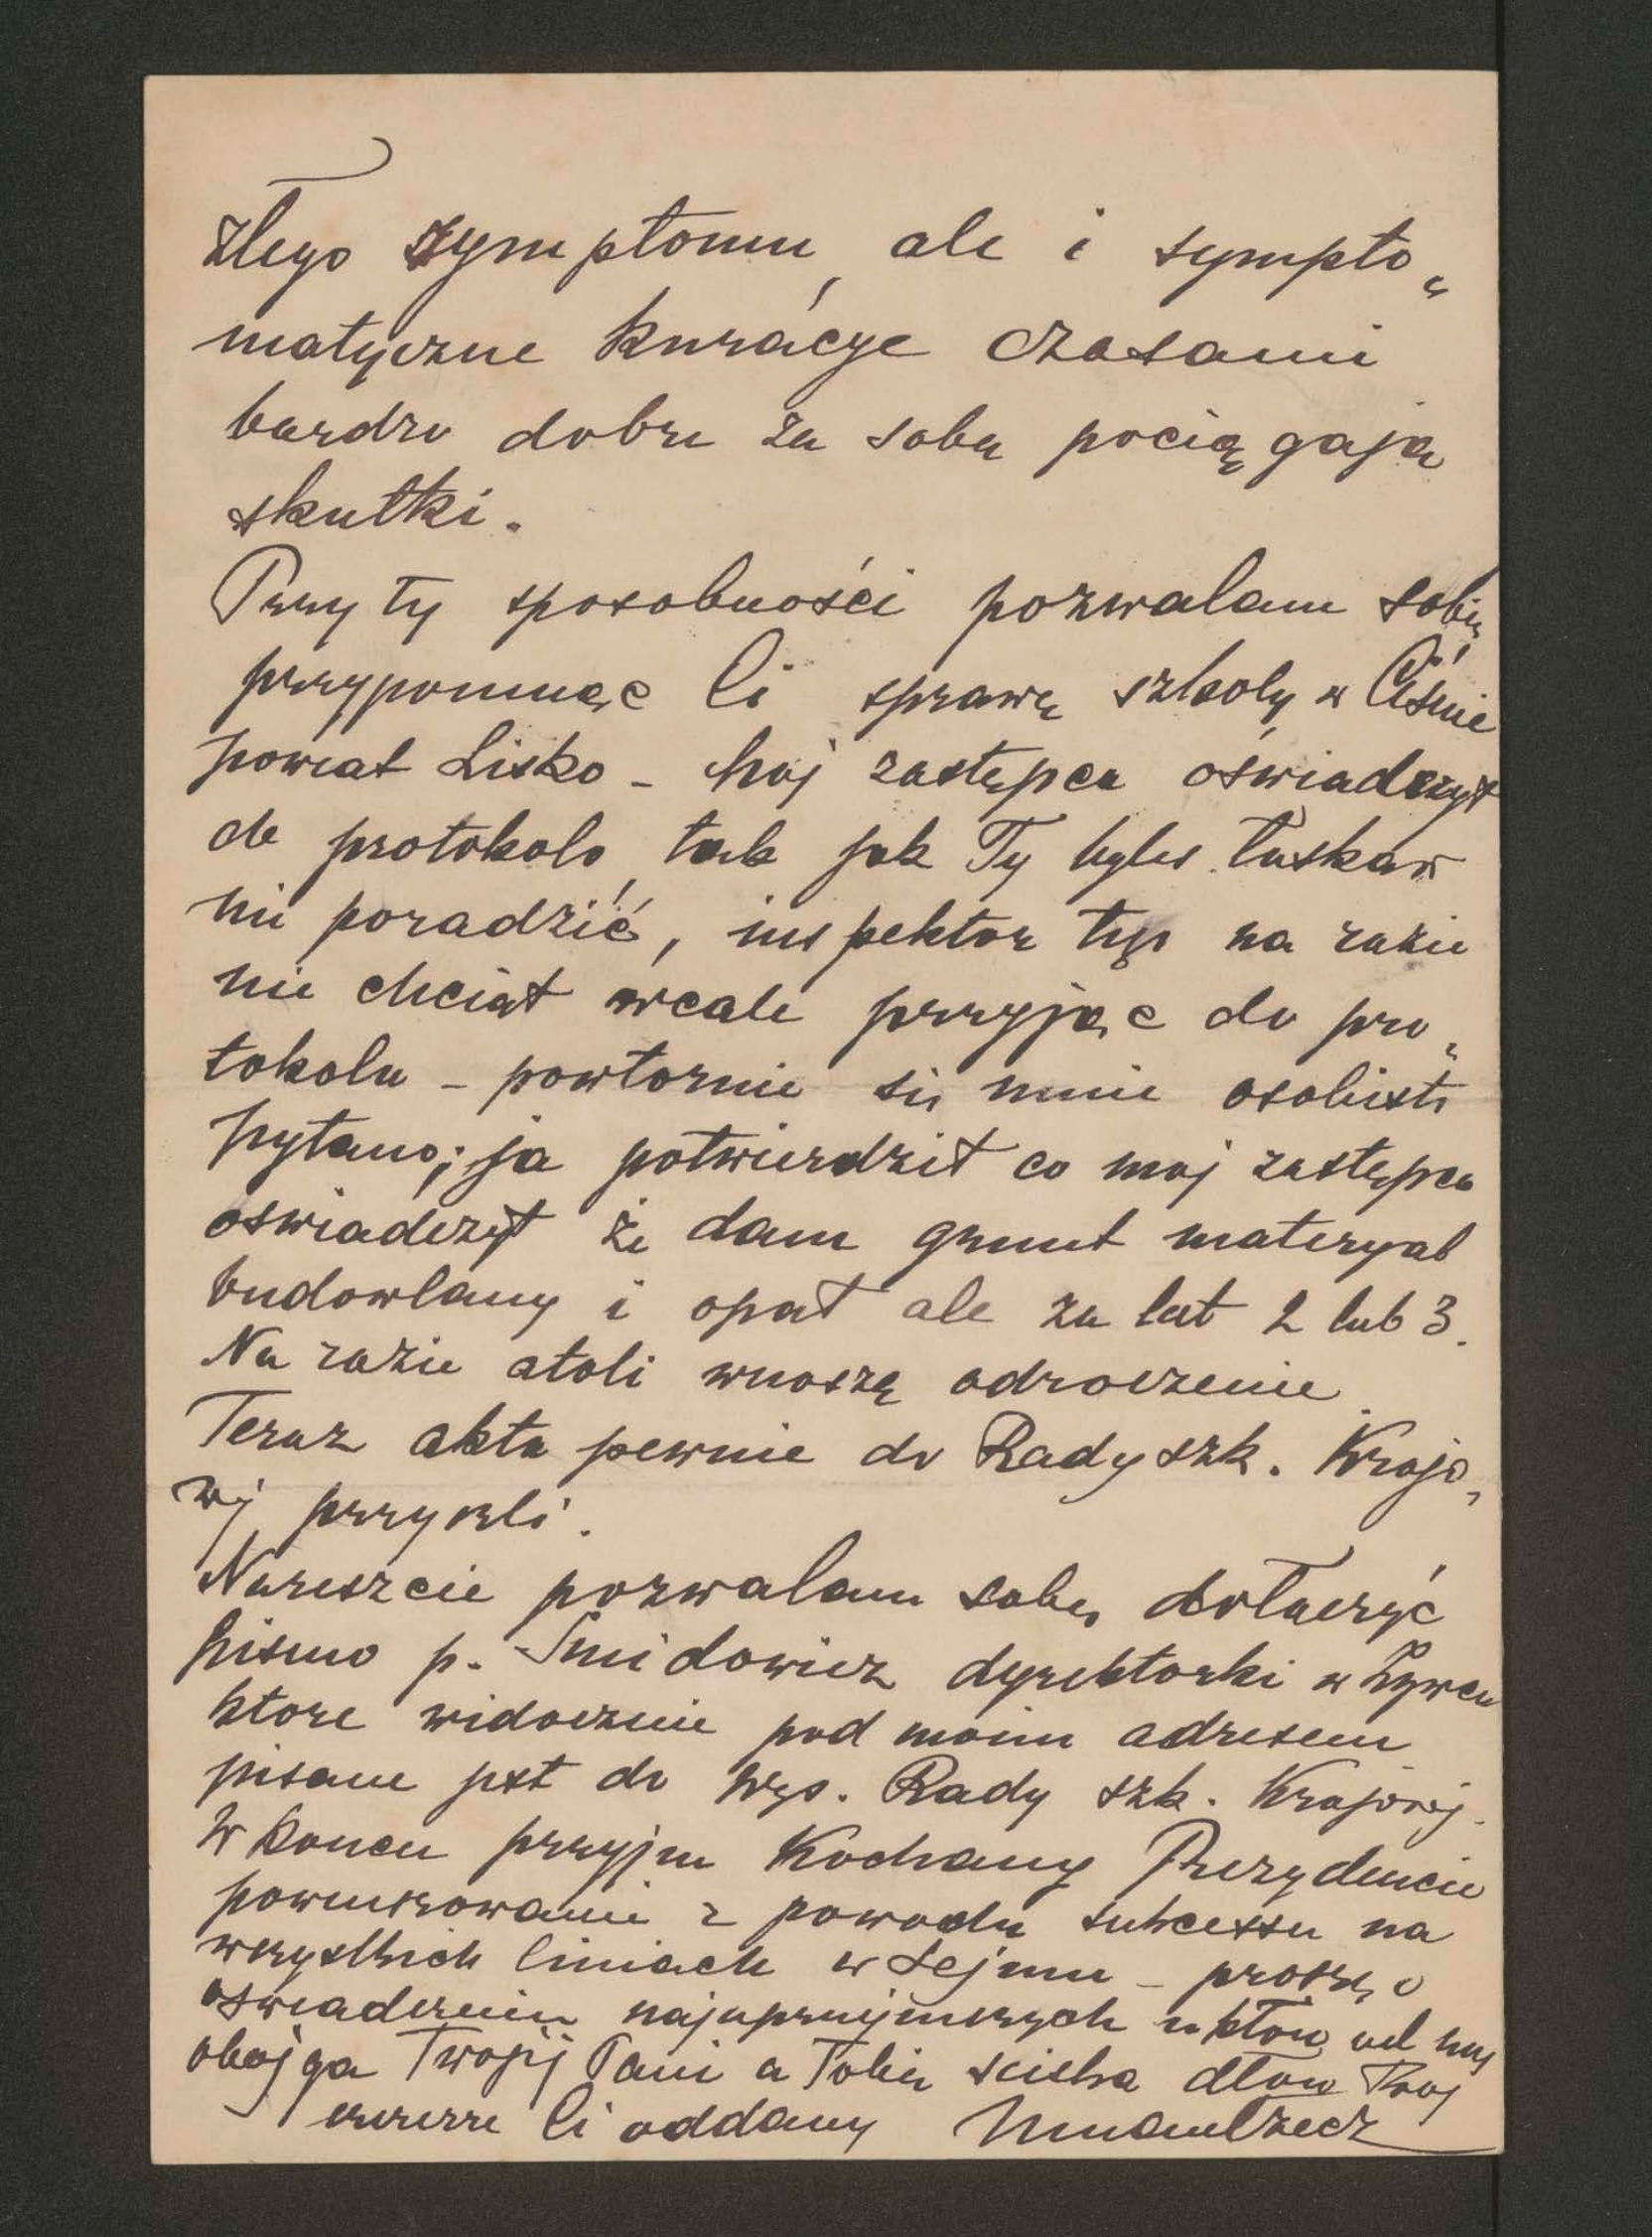 złego symptomu, ale i sympto„
matyczne kuracye czasami
bardzo dobre za sobą pociągają
skutki.
Przy tej sposobności pozwalam sobie
przypomnąć Ci sprawę szkoły w Ciśnie
powiat Lisko – moj zastępca oświadczył
do protokolo, tak jak Ty byłeś łaskaw
mi poradzić, inspektor tego na razie
nie chciał wcale przyjąć do pro„
tokolu – powtornie się mnie osobiste
pytano; ja potwierdził co moj zastępca
oświadczył że dam grunt materyał
budowlany i opał ale za lat 2 lub 3.
Na razie atoli wnoszę odroczenie.
Teraz akta pewnie do Rady szk. Krajo„
wej przyszli.
Nareszcie pozwalam sobie dołączyć
pismo p. Śmidowicz dyrektorki w Żywcu
ktore widocznie pod moim adresem
pisane jest do Wys. Rady szk. Krajowej.
W koncu przyjm Kochany Prezydencie
powinszowanie z powodu sukcessu na
wszystkich liniach w Sejmu – proszę o
oświadczenie najuprzejmszych ukłon od nas
obojga Twojej Pani a Tobie sciska dłon Twoj
szczerze Ci oddany